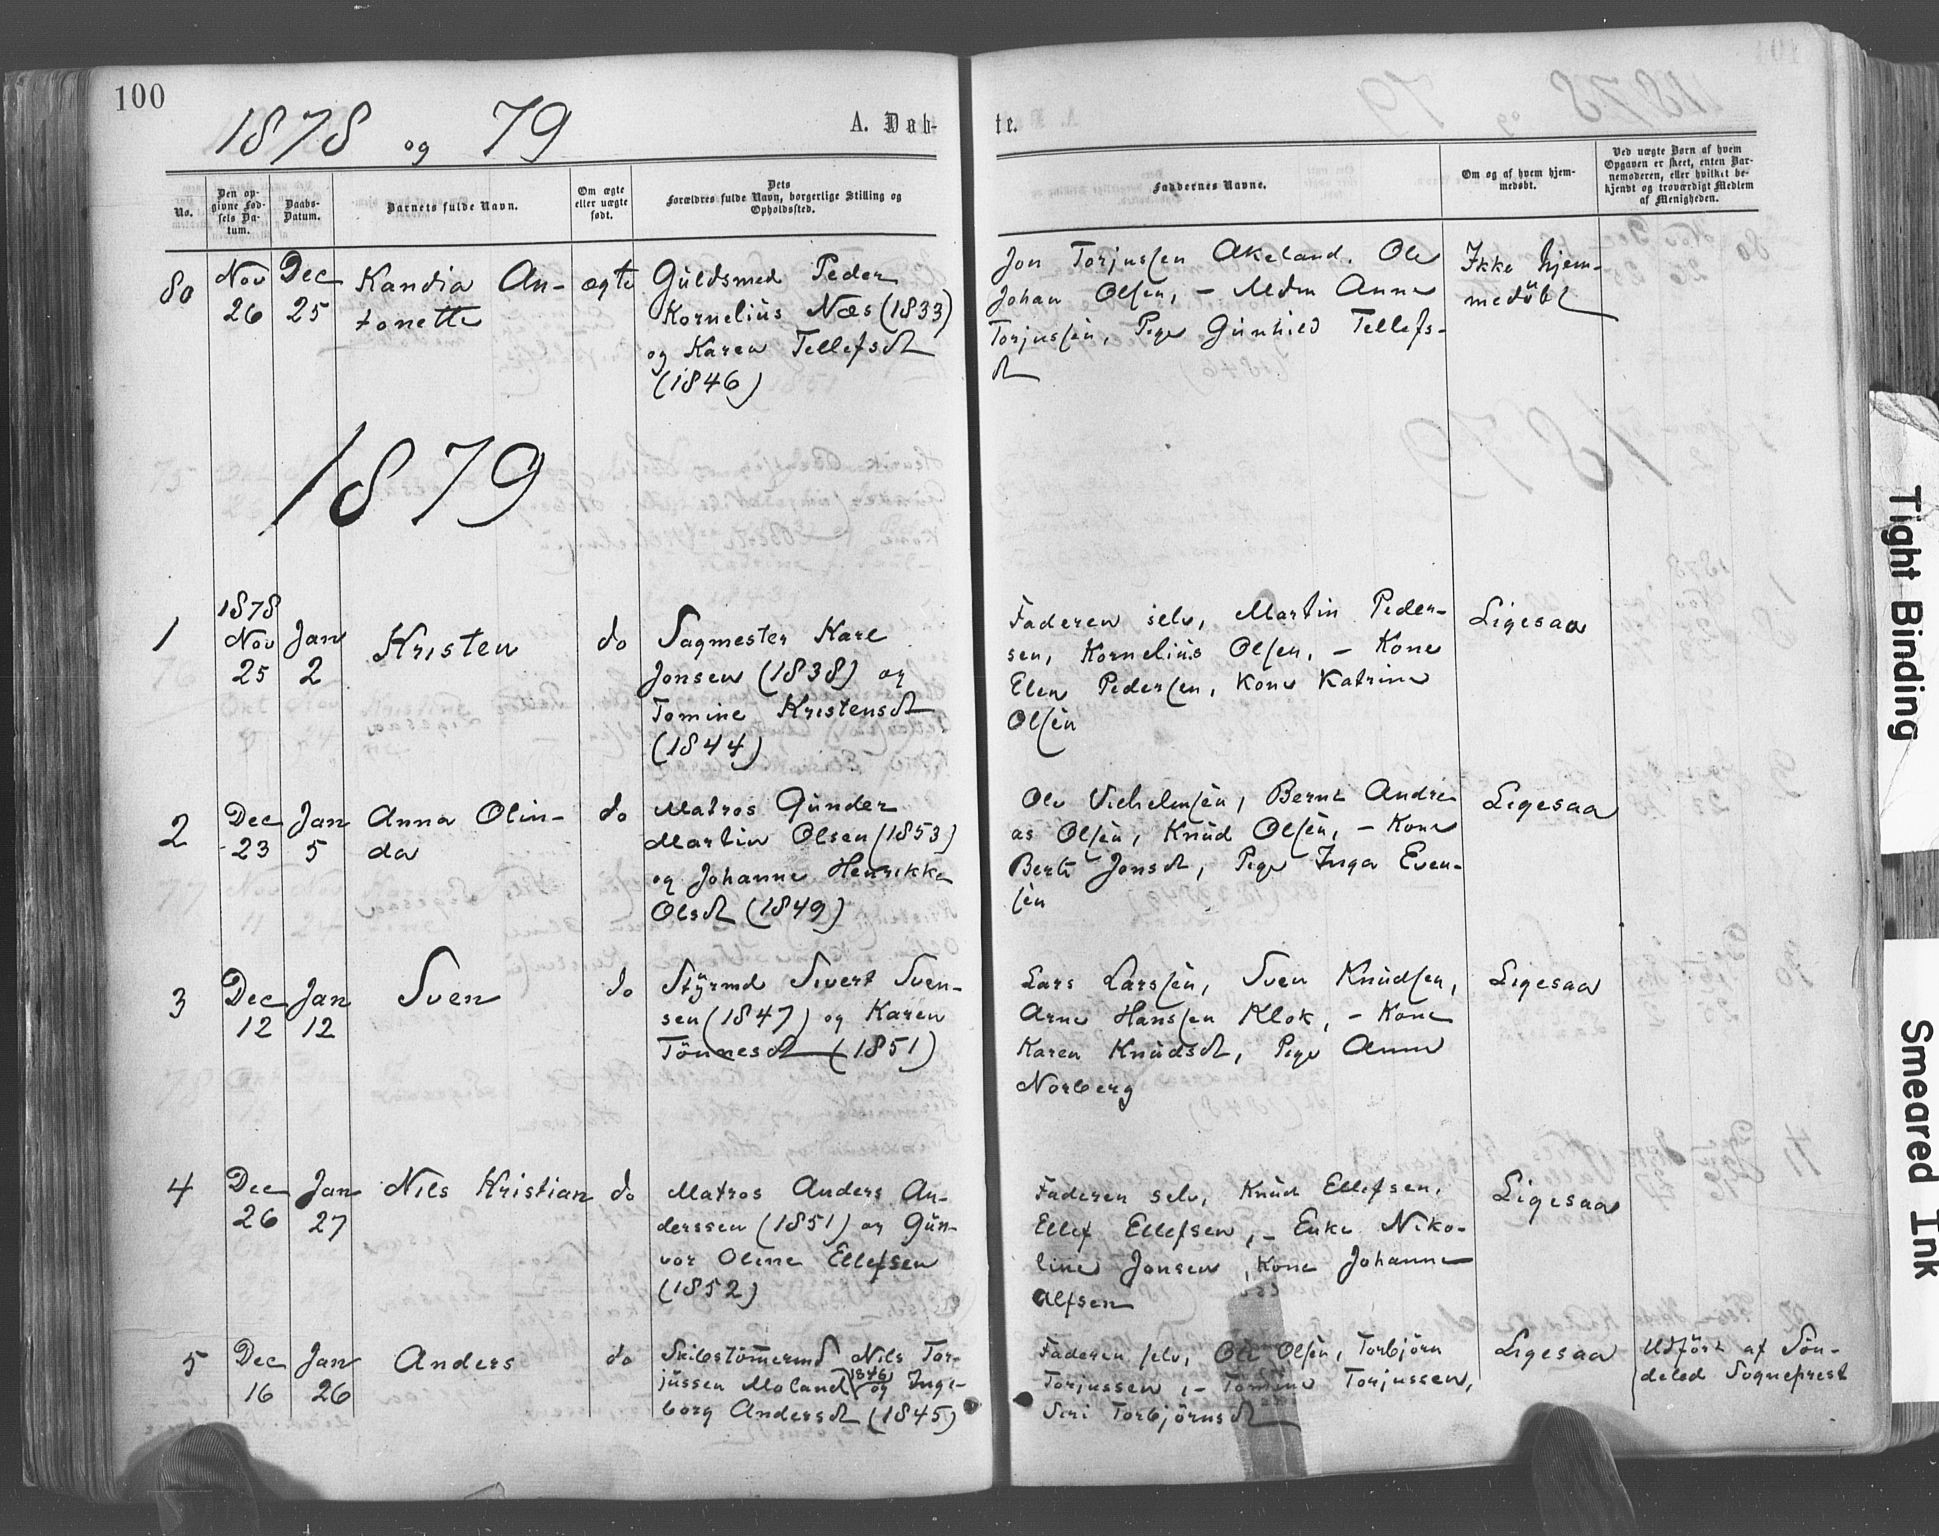 100
1878 og 79
A. Døb-
te.
No.
Den op-
givne Fød-
sels Da-
tum.
Daabs-
Datum.
Barnets fulde Navn.
Om ægte
eller uægte
født.
Dets
Forældres fulde Navn, borgerlige Stilling og
Opholdssted.
Faddernes Navne.
Om og af hvem hjem-
medøbt.
Ved uægte Børn af hvem
Opgaven er skeet, enten Bar-
nemoderen, eller hvilket be-
kjendt og troværdigt Medlem
af Menigheden.
80
Nov
26
Dec
25
Kandia An-
tonette
ægte
Guldsmed Peder
Kornelius Næs (1833)
og Karen Tellefsdt
(1846)
Jon Torjussen Akeland. Ole
Johan Olsen, – Mdm Anne
Torjussen, Pige Gunhild Tellefs-
dt
Ikke hjem-
medøbt
1879
1
1878
Nov
25
Jan
2
Kristen
do
Sagmester Karl
Jonsen (1838) og
Tomine Kristensdt
(1844)
Faderen selv, Martin Peder-
sen, Kornelius Olsen, – Kone
Elen Pedersen, Kone Katrine
Olsen
Ligesaa
2
Dec
23
Jan
5
Anna Olin-
da
do
Matros Gunder
Martin Olsen (1853)
og Johanne Henrikke
Olsdt (1849)
Ole Vilhelmsen, Bernt Andre
as Olsen, Knud Olsen, – Kone
Berte Jonsdt, Pige Inga Even-
sen
Ligesaa
3
Dec
12
Jan
12
Sven
do
Styrmd Sivert Sven-
sen (1847) og Karen
Tönnesdt (1851)
Lars Larssen, Sven Knudsen,
Arne Hanssen Klok, – Kone
Karen Knudsdt, Pige Anne
Norberg
Ligesaa
4
Dec
26
Jan
27
Nils Kristian
do
Matros Anders An-
derssen (1851) og Gun-
vor Oline Ellefsen
(1852)
Faderen selv, Knud Ellefsen,
Ellef Ellefsen, – Enke Niko-
line Jonsen, Kone Johanne
Alfsen
Ligesaa
5
Dec
16
Jan
26
Anders
do
Skibstömermd Nils Tor-
jussen Moland (1846) og Inge-
borg Andersdt (1845)
Faderen selv, Ole Olsen, Torbjörn
Torjussen, – Tomine Torjussen,
Siri Torbjörnsdt
Ligesaa
Udfört af Sön-
deled Sogneprest
Tight Binding
Smeared Ink